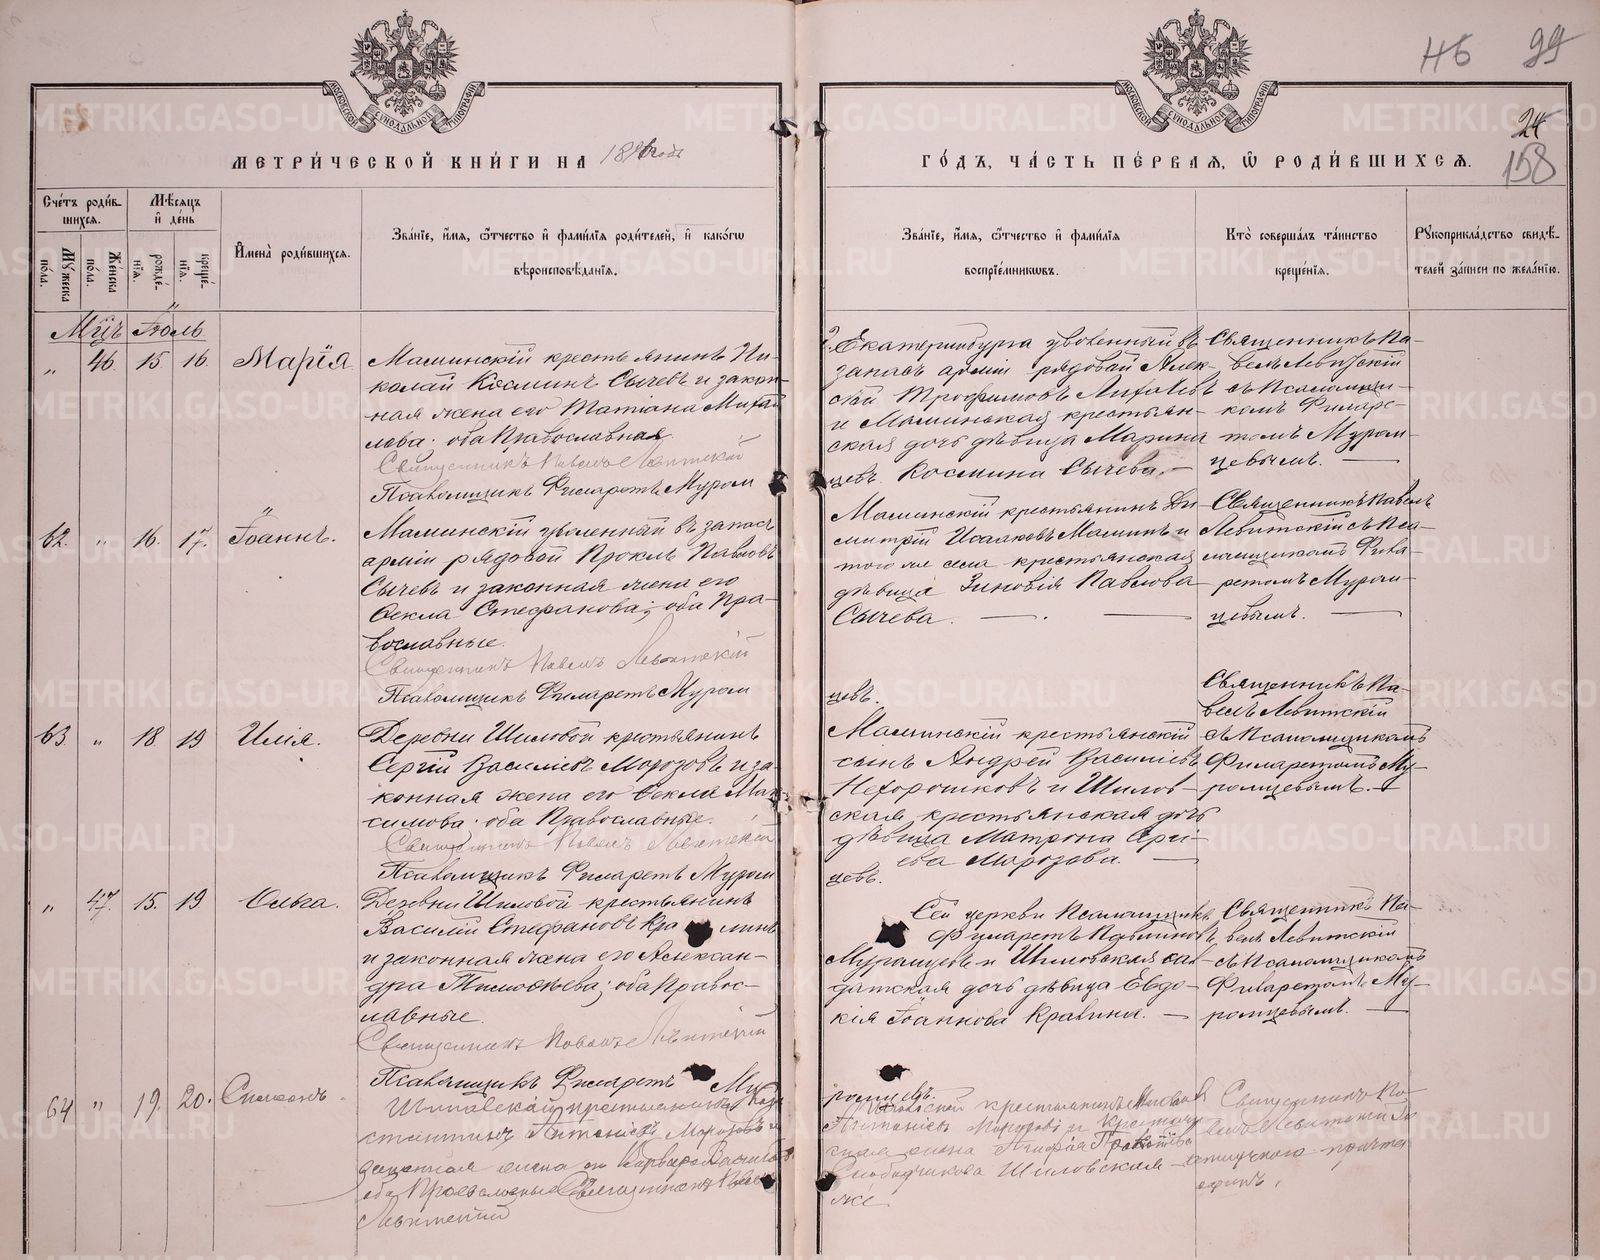 МОСКОВСКОЙ СѴНОДАЛЬНОЙ ТИПОГРАФІИ
МОСКОВСКОЙ СѴНОДАЛЬНОЙ ТИПОГРАФІИ
99
24
158
МЕТРИ́ЧЕСКОЙ КНИ́ГИ НА
ГО́ДЪ, ЧА́СТЬ ПЕ́РВАЯ, Ѿ РОДИ́ВШИХСЯ.
Сче́тъ роди́вшихся.
Мѣ́сяцъ и҆ де́нь
Му́жеска по́ла.
Же́нска по́ла.
рожде́нїя.
креще́нїя.
И҆мена̀ роди́вшихся.
Зва́нїе, и҆́мя, ѻ҆́тчество и҆ фами́лїя роди́телей, и҆ како́гѡ
вѣроисповѣ́данїя.
Зва́нїе, и҆́мя, ѻ҆́тчество и҆ фами́лїя
воспрїе́мникѡвъ.
Кто̀ соверша́лъ та́инство
креще́нїя.
Рꙋкоприкла́дство свидѣ́телей за́писи по жела́нїю.
Мцъ Іюль
„ 46. 15 16. Марія
Маминскій крестьянинъ Ни-
колай Косминъ Сычевъ и закон-
ная жена его Татіана Михай
лова; оба Православная.
Священникъ Павелъ Левитскій
Псаломщикъ Филаретъ Муром
г. Екатеринбурга уволенный въ
запасъ арміи рядовой Алек-
сѣй Трофимовъ
и Маминская крестьян-
ская дочь дѣвица Марина
цевъ. Космина Сычева. —
Священникъ Па-
велъ Левитскій
съ Псаломщи-
комъ Филаре-
томъ Муром-
цевымъ. —
62. „ 16. 17. Іоаннъ.
Маминскій уволенный въ запасъ
арміи рядовой Проклъ Павловъ
Сычевъ и законная жена его
Ѳекла Стефанова; оба Пра-
вославные.
Священникъ Павелъ Левитскій
Псаломщикъ Филаретъ Муром
Маминскій крестьянинъ Ди-
митрій Исааковъ Маминъ и
того же села крестьянская
дѣвица Зиновія Павлова
Сычева. —
цевъ.
Священникъ Павелъ
Левитскій съ Пса-
ломщикомъ Фила-
ретомъ Муром-
цевымъ. —
63. „ 18 19 Илія.
Деревни Шиловой крестьянинъ
Сергій Василіевъ Морозовъ и за-
конная жена его Ѳекла Мак
симова; оба Православные.
Священникъ Павелъ Левитскій
Псаломщикъ Филаретъ Муром
Маминскій крестьянскій
сынъ Андрей Василіевъ
Нехорошковъ и Шилов-
ская крестьянская дочь
дѣвица Матрона Сергі-
ева Морозова. —
цевъ.
Священникъ Па-
велъ Левитскій
съ Псаломщикомъ
Филаретомъ Му-
ромцевымъ. —
„ 47. 15. 19 Ольга.
Деревни Шиловой крестьянинъ
Василій Стефановъ
и законная жена его Алексан-
дра Тимоѳеева; оба Правос-
лавные.
Священникъ Павелъ Левитскій
Псаломщикъ Филаретъ Му
Сей церкви Псаломщикъ
Филаретъ
Муромцевъ и Шиловская сол-
датская дочь дѣвица Евдо-
кія Іоаннова Кравина. —
ромцевъ.
Священникъ Па-
велъ Левитскій
съ Псаломщикомъ
Филаретомъ Му-
ромцевымъ. —
64 „ 19. 20.
Шиловскій крестьянинъ Кон
стантинъ Антоніевъ Морозовъ и
законная жена его Варвара
оба Православные Священникъ Павелъ
Левитскій
крестьянинъ
Антоніевъ Морозовъ и
Слободчикова Шиловская
же
Священникъ Па-
велъ Левитскій